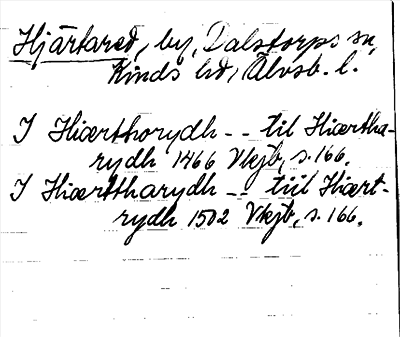 Hjärtared, by, Dalstorps sn,
Kinds hd, Älvsb. l.
I Hiærthorydh -- til Hiærtha-
rydh 1466 Vkjb, s. 166.
I Hiærttharydh -- tiil Hiært-
rydh 1502 Vkjb, s. 166.